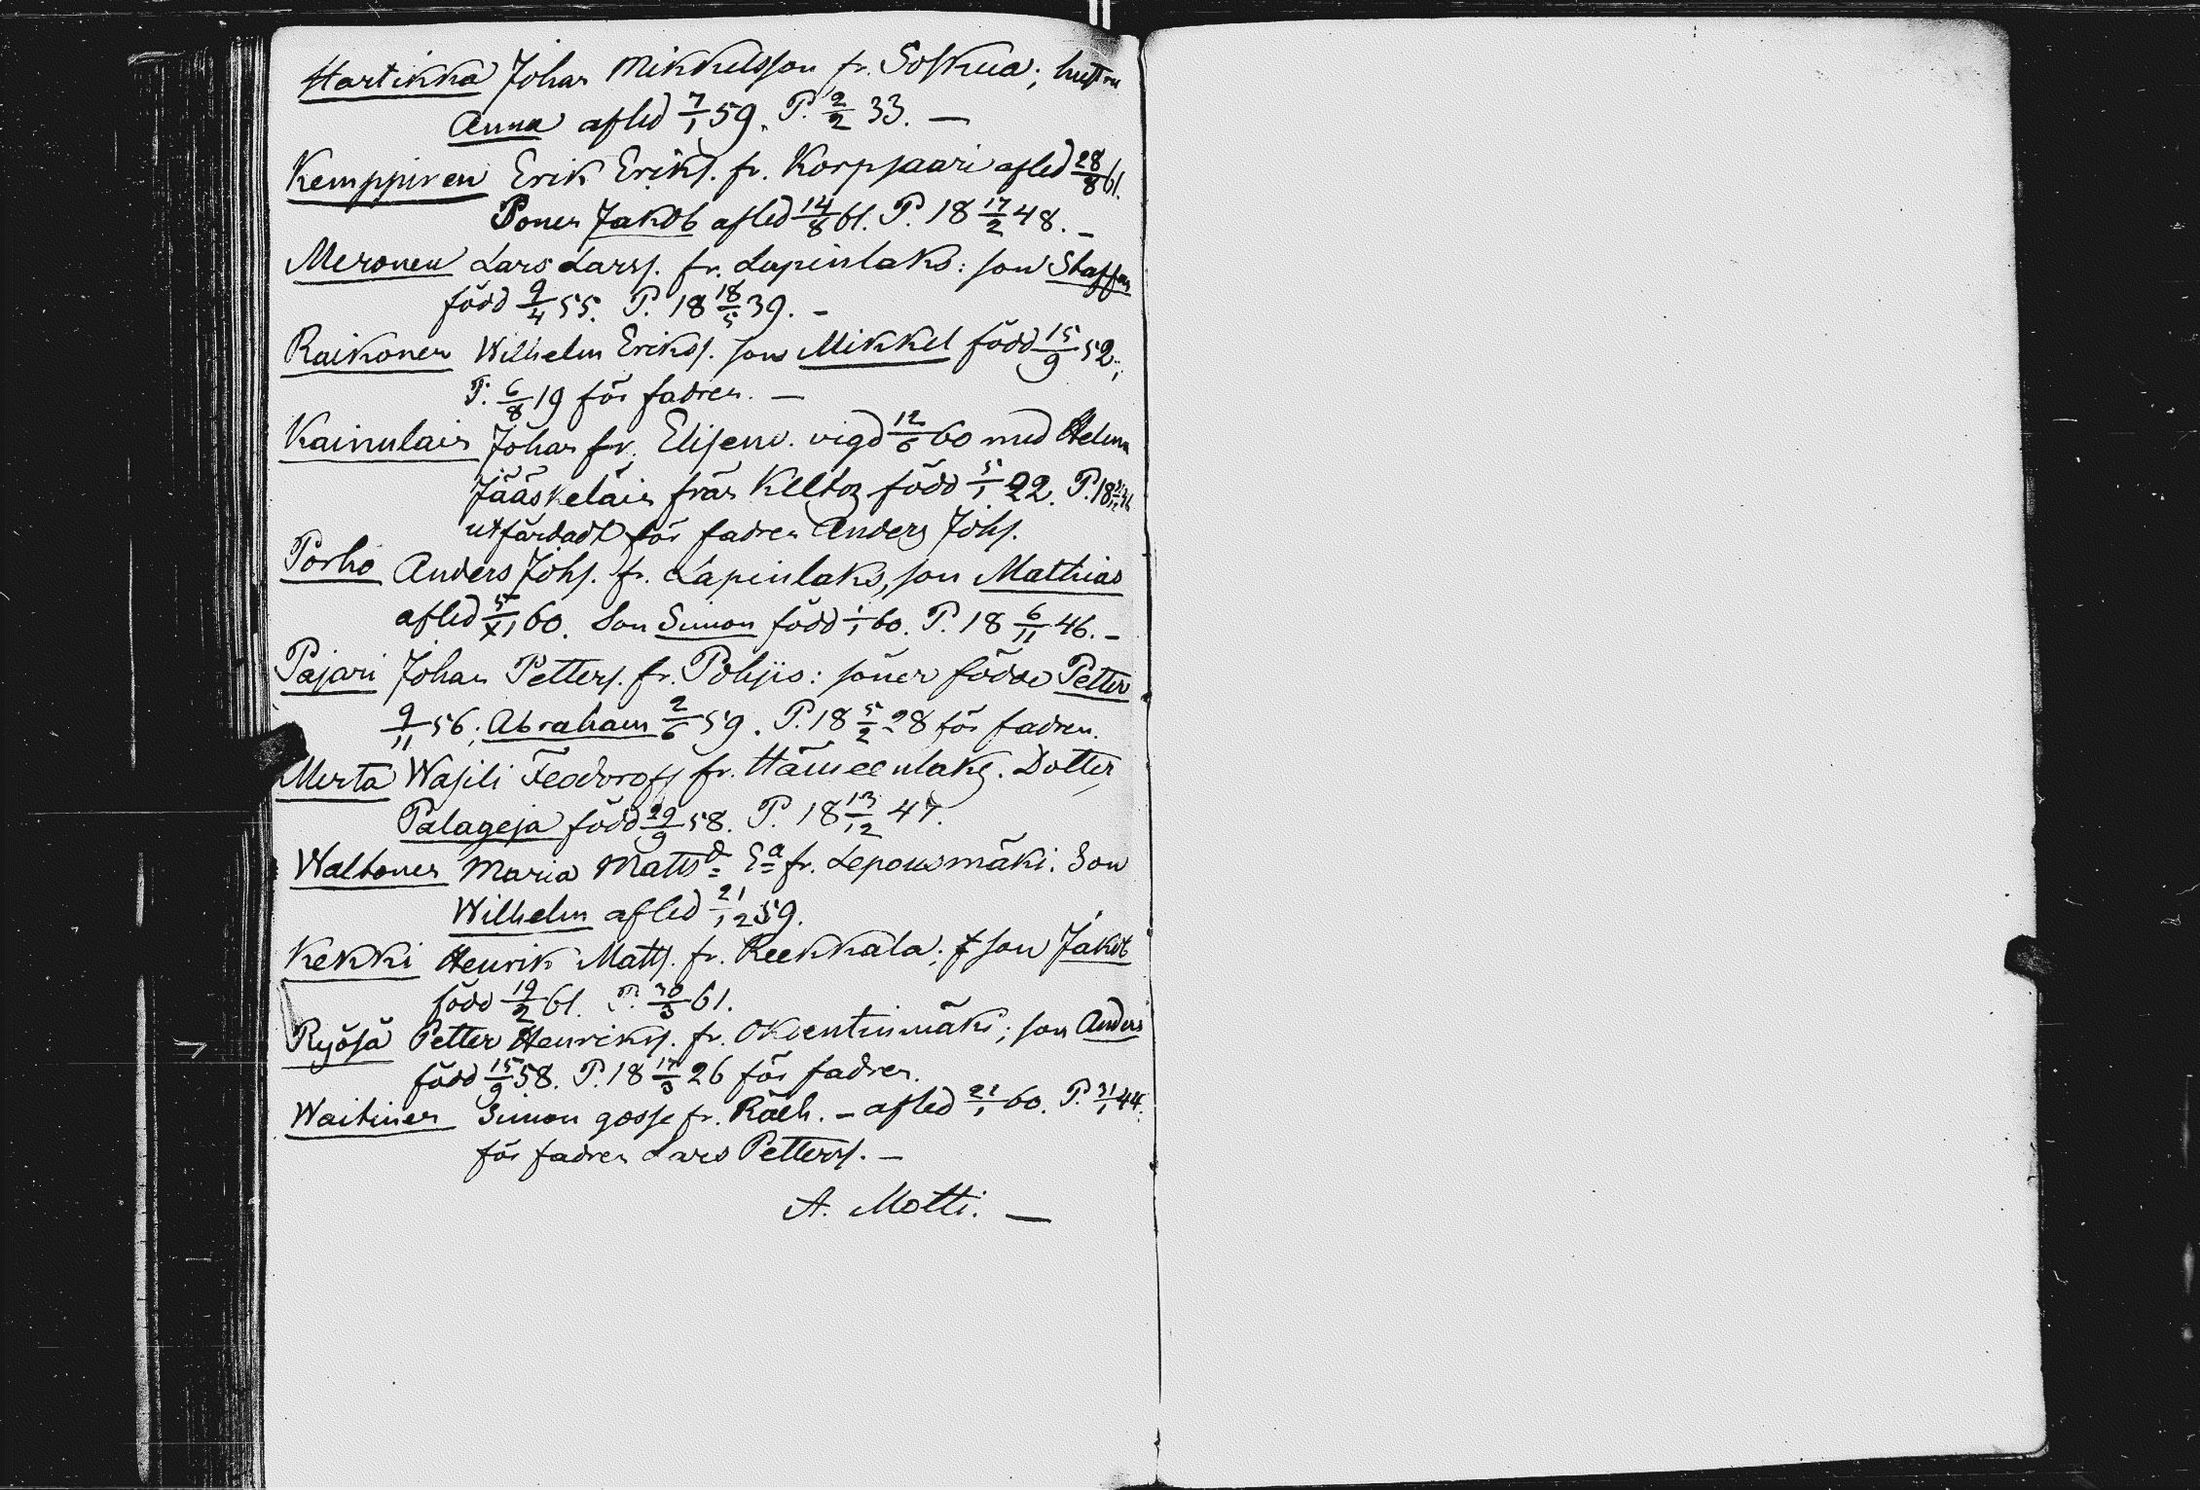 Hartikka Johan Mikkelsson fr. Soskua; hustru
Anna afled 7/1 59. P. 2/2 33. —
Kemppinen Erik Eriks. fr. Korpsaari afled 28/8 61.
Jakob afled 14/8 61. P. 18 17/2 48. —
Meronen Lars Larss. fr. Lapinlaks: son Staffan
född 9/4 55. P. 18 18/5 39. —
Raikonen Wilhelm Erikss. son Mikkel född 15/9 52;
P. 6/8 19 för fadren. —
Kainulain Johan fr. Elisenv. vigd 12/6 60 med Helena
Jääskeläin från Keltoz född 5/1 22. P. 18
utfärdadt för fadren Anders Johs.
Porho Anders Johs. fr. Lapinlaks, son Mathias
afled 5/XI 60. Son Simon född 1/1 60. P. 18 6/11 46. —
Pajari Johan Petters. fr. Pohjis: söner födde Petter
9/11 56; Abraham 2/6 59. P. 18 5/2 28 för fadren.
Merta Wasili Feodoroff fr. Hämeenlaks. Dotter
Palageja född 29/9 58. P. 18 13/12 47.
Waltonen Maria Matts d. Ea fr. Leponsmäki. Son
Wilhelm afled 21/12 59.
Kekki Henrik Matts. fr. Reekkala; son Jakob
född 19/2 61. P. 30/3 61.
Ryösä Petter Henrikss. fr. Okventinmäki; son Anders
född 15/9 58. P. 18 17/3 26 för fadren.
Waitinen Simon gosse fr. Räih. — afled 21/1 60. P. 31/1 44.
för fadren Lars Petterss. —
A. Motti. —